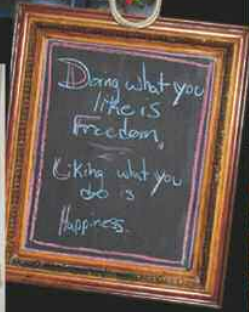 Doing what you
like is
Freedom,
Liking what you
do is
Happiness.